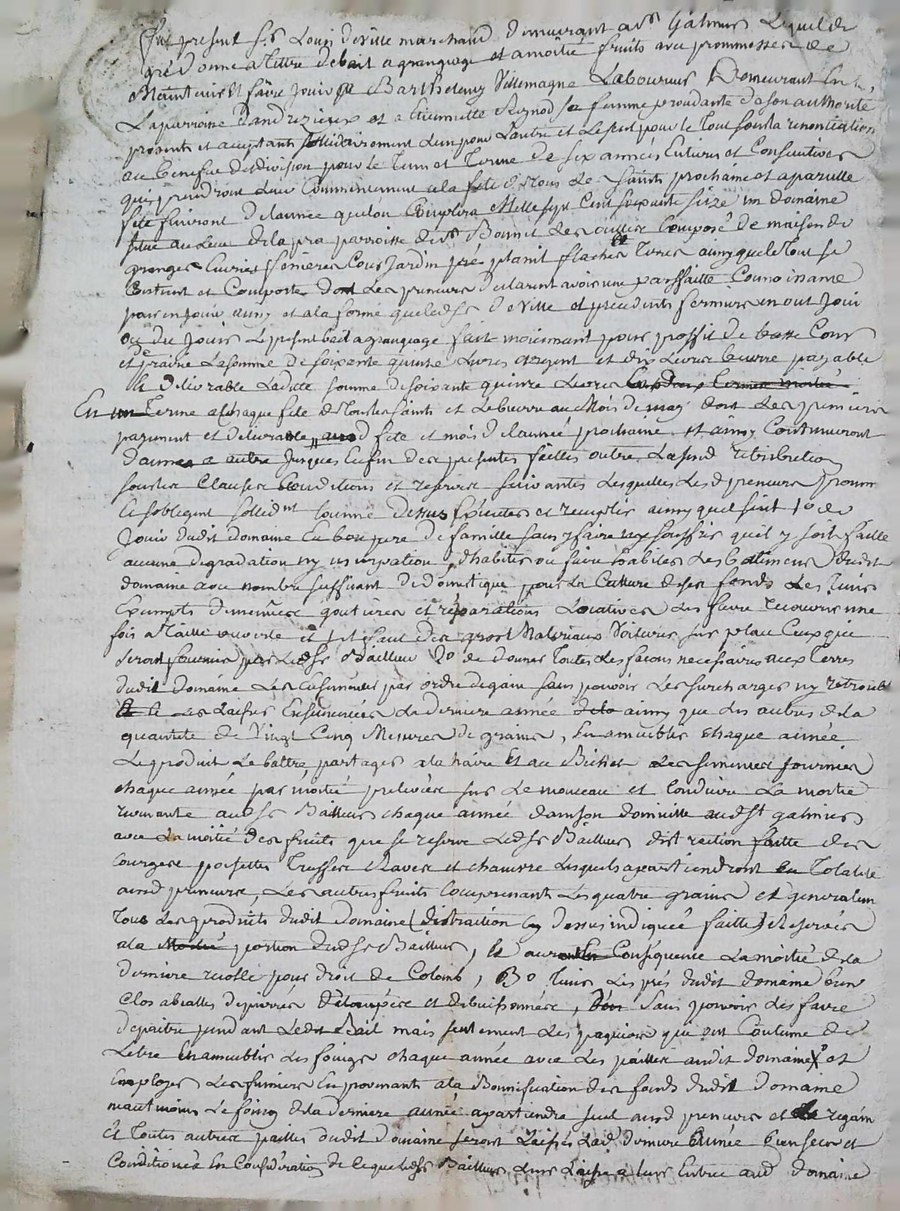 fut présent sr Louis deville marchand demeurant a st Galmier Lequel de
gré donne a tittre de bail a grangeage et a moitié fruits avec prommesse de
Maintenir et faire jouir a Barthelemy Villemagne Laboureur Demeurant En
La parroisse Dandrezieux et a Etiennette Reynod sa femme procedante de son authorité
présents et acceptants sollidairement L'un pour L'autre et Le seul pour le tout sous la renontiation
au benefice de division pour le tems et terme de six années Entieres et Consécutives
qui prendront Leur Commencement a la fete de tous Les saints prochaine et a pareille
fete finiront de L'année que l'on Comptera Mille sept Cent soixante seize un domaine
situé au Lieu de la pra parroisse de st Bonnet Les oulles Composé de maison de
granges Ecuries fenieres Cour Jardin pré terres ainsy que le tout se
Contient et Comporte dont Les preneurs declarent avoir une parffaitte Connoissance
pour en jouir ainsy et a la forme que ledit sr deVille et précédents fermiers en ont joui
ou du jouir Le present bail a grangeage fait moiennant pour proffit de basse Cour
et prairie La somme de soixante quinze Livres argent et dix Livres beurre payable
et délivrable Ladite somme de soixante quinze Livres
En un terme a Chaque fete de Tous les saints et Le beurre au Mois de may dont Les premiers
payement et délivrable aud fete et mois de L'année prochaine et ainsy Continueront
d'année a autre jusques En fin des présentes oultre La susd retribution
sous les Clauses Conditions et reserves suivantes Lesquelles Lesd preneurs promettent
et s'obligent sollidt comme dessus Executer et remplir ainsy qu'il suit 1o de
jouir dudit domaine En bon pere de famille sans y faire ny souffrir qu'il y soit faitte
aucune dégradation ny usurpation, d'habiter ou faire habiter Les batiments dudit
domaine avec nombre suffisant de domestique pour La Culture de ses fonds Les tenir
Exempts de goutieres et réparations Locatives Les faire recouvrir une
fois a taille ouverte et des gros Materiaux Voiturés sur place Ceux qui
seront fournis par Ledit sr Bailleur 2o de donner toutes Les façons necessaires aux terres
dudit domaine Les Ensemencer par ordre de gain sans pouvoir Les surcharger ny retrouble
Les Laisser Ensemencées La derniere année ainsy que Les autres de la
quantité de Vingt Cinq Mesures de grains, En ameublir chaque année
Le produit Le battre partager a la haire Et au Bichet Les semences fournies
chaque année par moitié prélevées sur Le monceau et Conduire La moitié
revenante audit sr Bailleur chaque année dans son domicille audit st galmier
avec La moitié des fruits que se reserve Ledit sr Bailleur distraction faitte des
Courges poisettes Treffles Raves et chanvre Lesquels apartiendront En Totalité
auxd preneurs, Les autres fruits Comprenants Les quatre grains et generalem
tous Les produits dudit domaine (distraction cy dessus indiquée faitte) Réservés
a la portion dudit sr Bailleur, Et aura En Conséquence La moitié de la
derniere recolte pour droit de Colons, 3o tenir Les prés dudit domaine bien
Clos abiallés épierrés d'étaupés et débuissonnés, sans pouvoir Les faire
depaitre pendant Ledit Bail mais seulement Les paquiers qui ont Coutume de
L'etre En ameublir Les foings chaque année avec Les pailles audit domaine et
Employer Les fumiers En provenants a la Bonnification des fonds dudit domaine
neantmoins Le foing de la derniere année apartiendra seul auxd preneurs et Le regain
Et toutes autres pailles dudit domaine seront Laissés Lad derniere Année bien secs et
Conditionnés En Considération de Ce que Ledit sr Bailleur Leur Laisse a Leur Entrée aud domaine